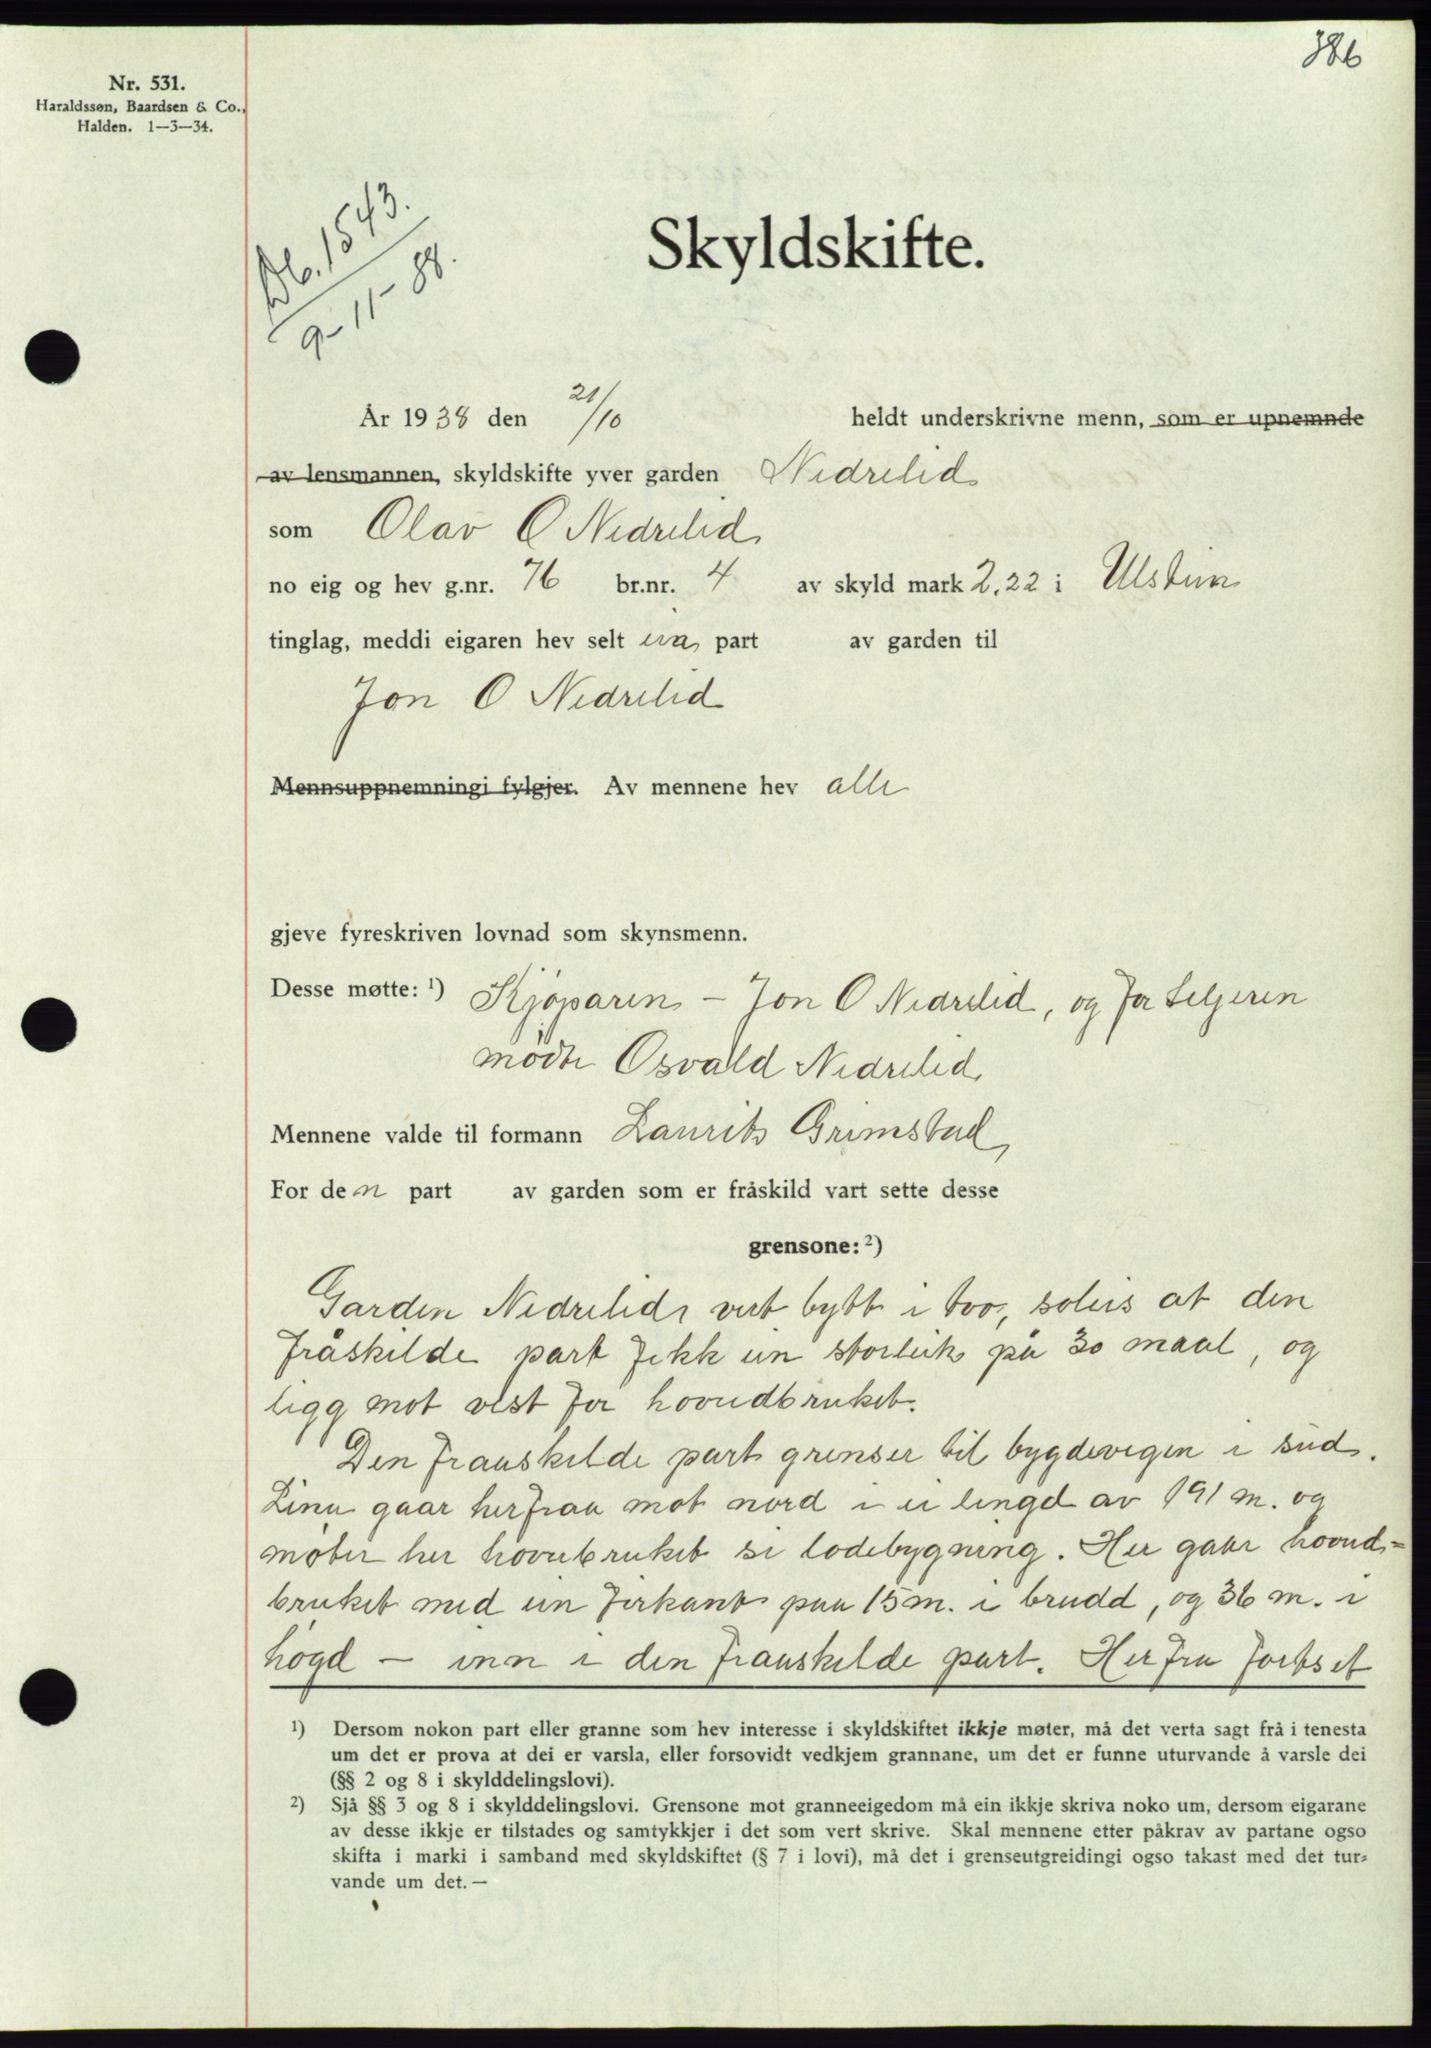 386
Nr. 531.
Haraldssøn, Baardsen & Co.,
Halden. 1—3—34.
Db. 1543.
9-11-38.
Skyldskifte.
År 1938 den 21/10 heldt underskrivne menn, som er upnemnde
av lensmannen, skyldskifte yver garden Nedrelid
som Olav O Nedrelid
no eig og hev g.nr. 76 br.nr. 4 av skyld mark 2,22 i Ulstein
tinglag, meddi eigaren hev selt ein part av garden til
Jon O Nedrelid
Mennsuppnemningi fylgjer. Av mennene hev alle
gjeve fyreskriven lovnad som skynsmenn.
Desse møtte: ¹) Kjöparen – Jon O Nedrelid, og for Seljeren
mödte Osvald Nedrelid
Mennene valde til formann Laurits Grimstad
For den part av garden som er fråskild vart sette desse
grensone: ²)
Garden Nedrelid vert bytt i too, soleis at den
fråskilde part fekk ein storleik på 30 maal, og
ligg mot vest for hovudbruket.
Den fraaskilde part grenser til bygdevegen i sud.
Lina gaar herfraa mot nord i ei lengd av 191 m. og
möter her hovubruket si lödebygning. Her gaar hovud-
bruket med ein firkant paa 15 m. i breidd, og 36 m. i
högd – inn i den fraaskilde part. Her fra fortset
¹) Dersom nokon part eller granne som hev interesse i skyldskiftet ikkje møter, må det verta sagt frå i tenesta
um det er prova at dei er varsla, eller forsovidt vedkjem grannane, um det er funne uturvande å varsle dei
(§§ 2 og 8 i skylddelingslovi).
²) Sjå §§ 3 og 8 i skylddelingslovi. Grensone mot granneeigedom må ein ikkje skriva noko um, dersom eigarane
av desse ikkje er tilstades og samtykkjer i det som vert skrive. Skal mennene etter påkrav av partane ogso
skifta i marki i samband med skyldskiftet (§ 7 i lovi), må det i grenseutgreidingi ogso takast med det tur-
vande um det. —